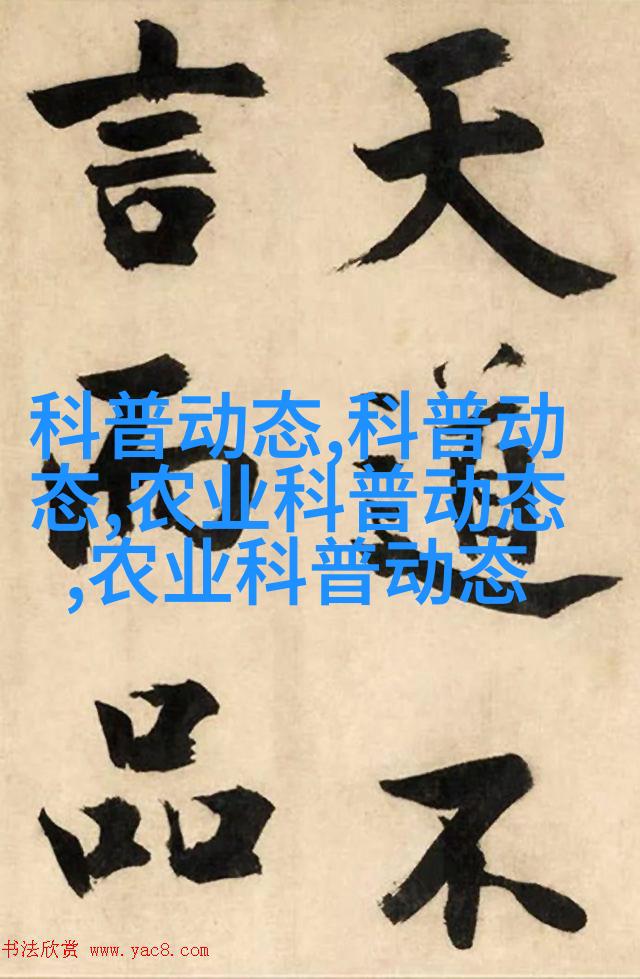 天道不
言而品
科普动态,科普动
态,农业科普动态
,农业科普动态
书法欣赏 www.yac8.com